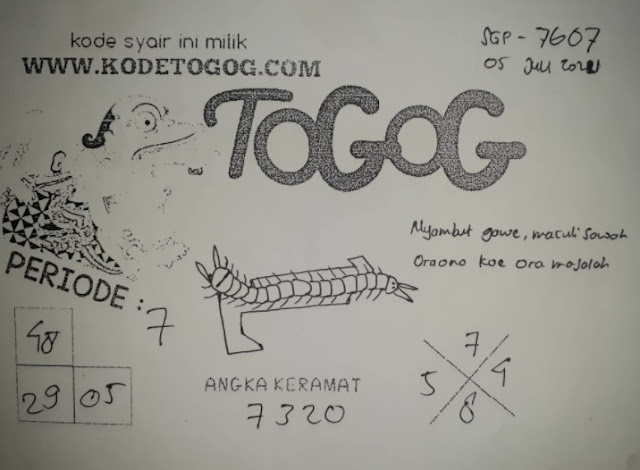 kode syair ini milik
WWW.KODETOGOG.COM
SGP - 7607
TOGOG
Nyambut gawe, macul sawah
Ora ono koe ora masalah
PERIODE : 7
48
29 05
ANGKA KERAMAT
7320
7
5 9
8